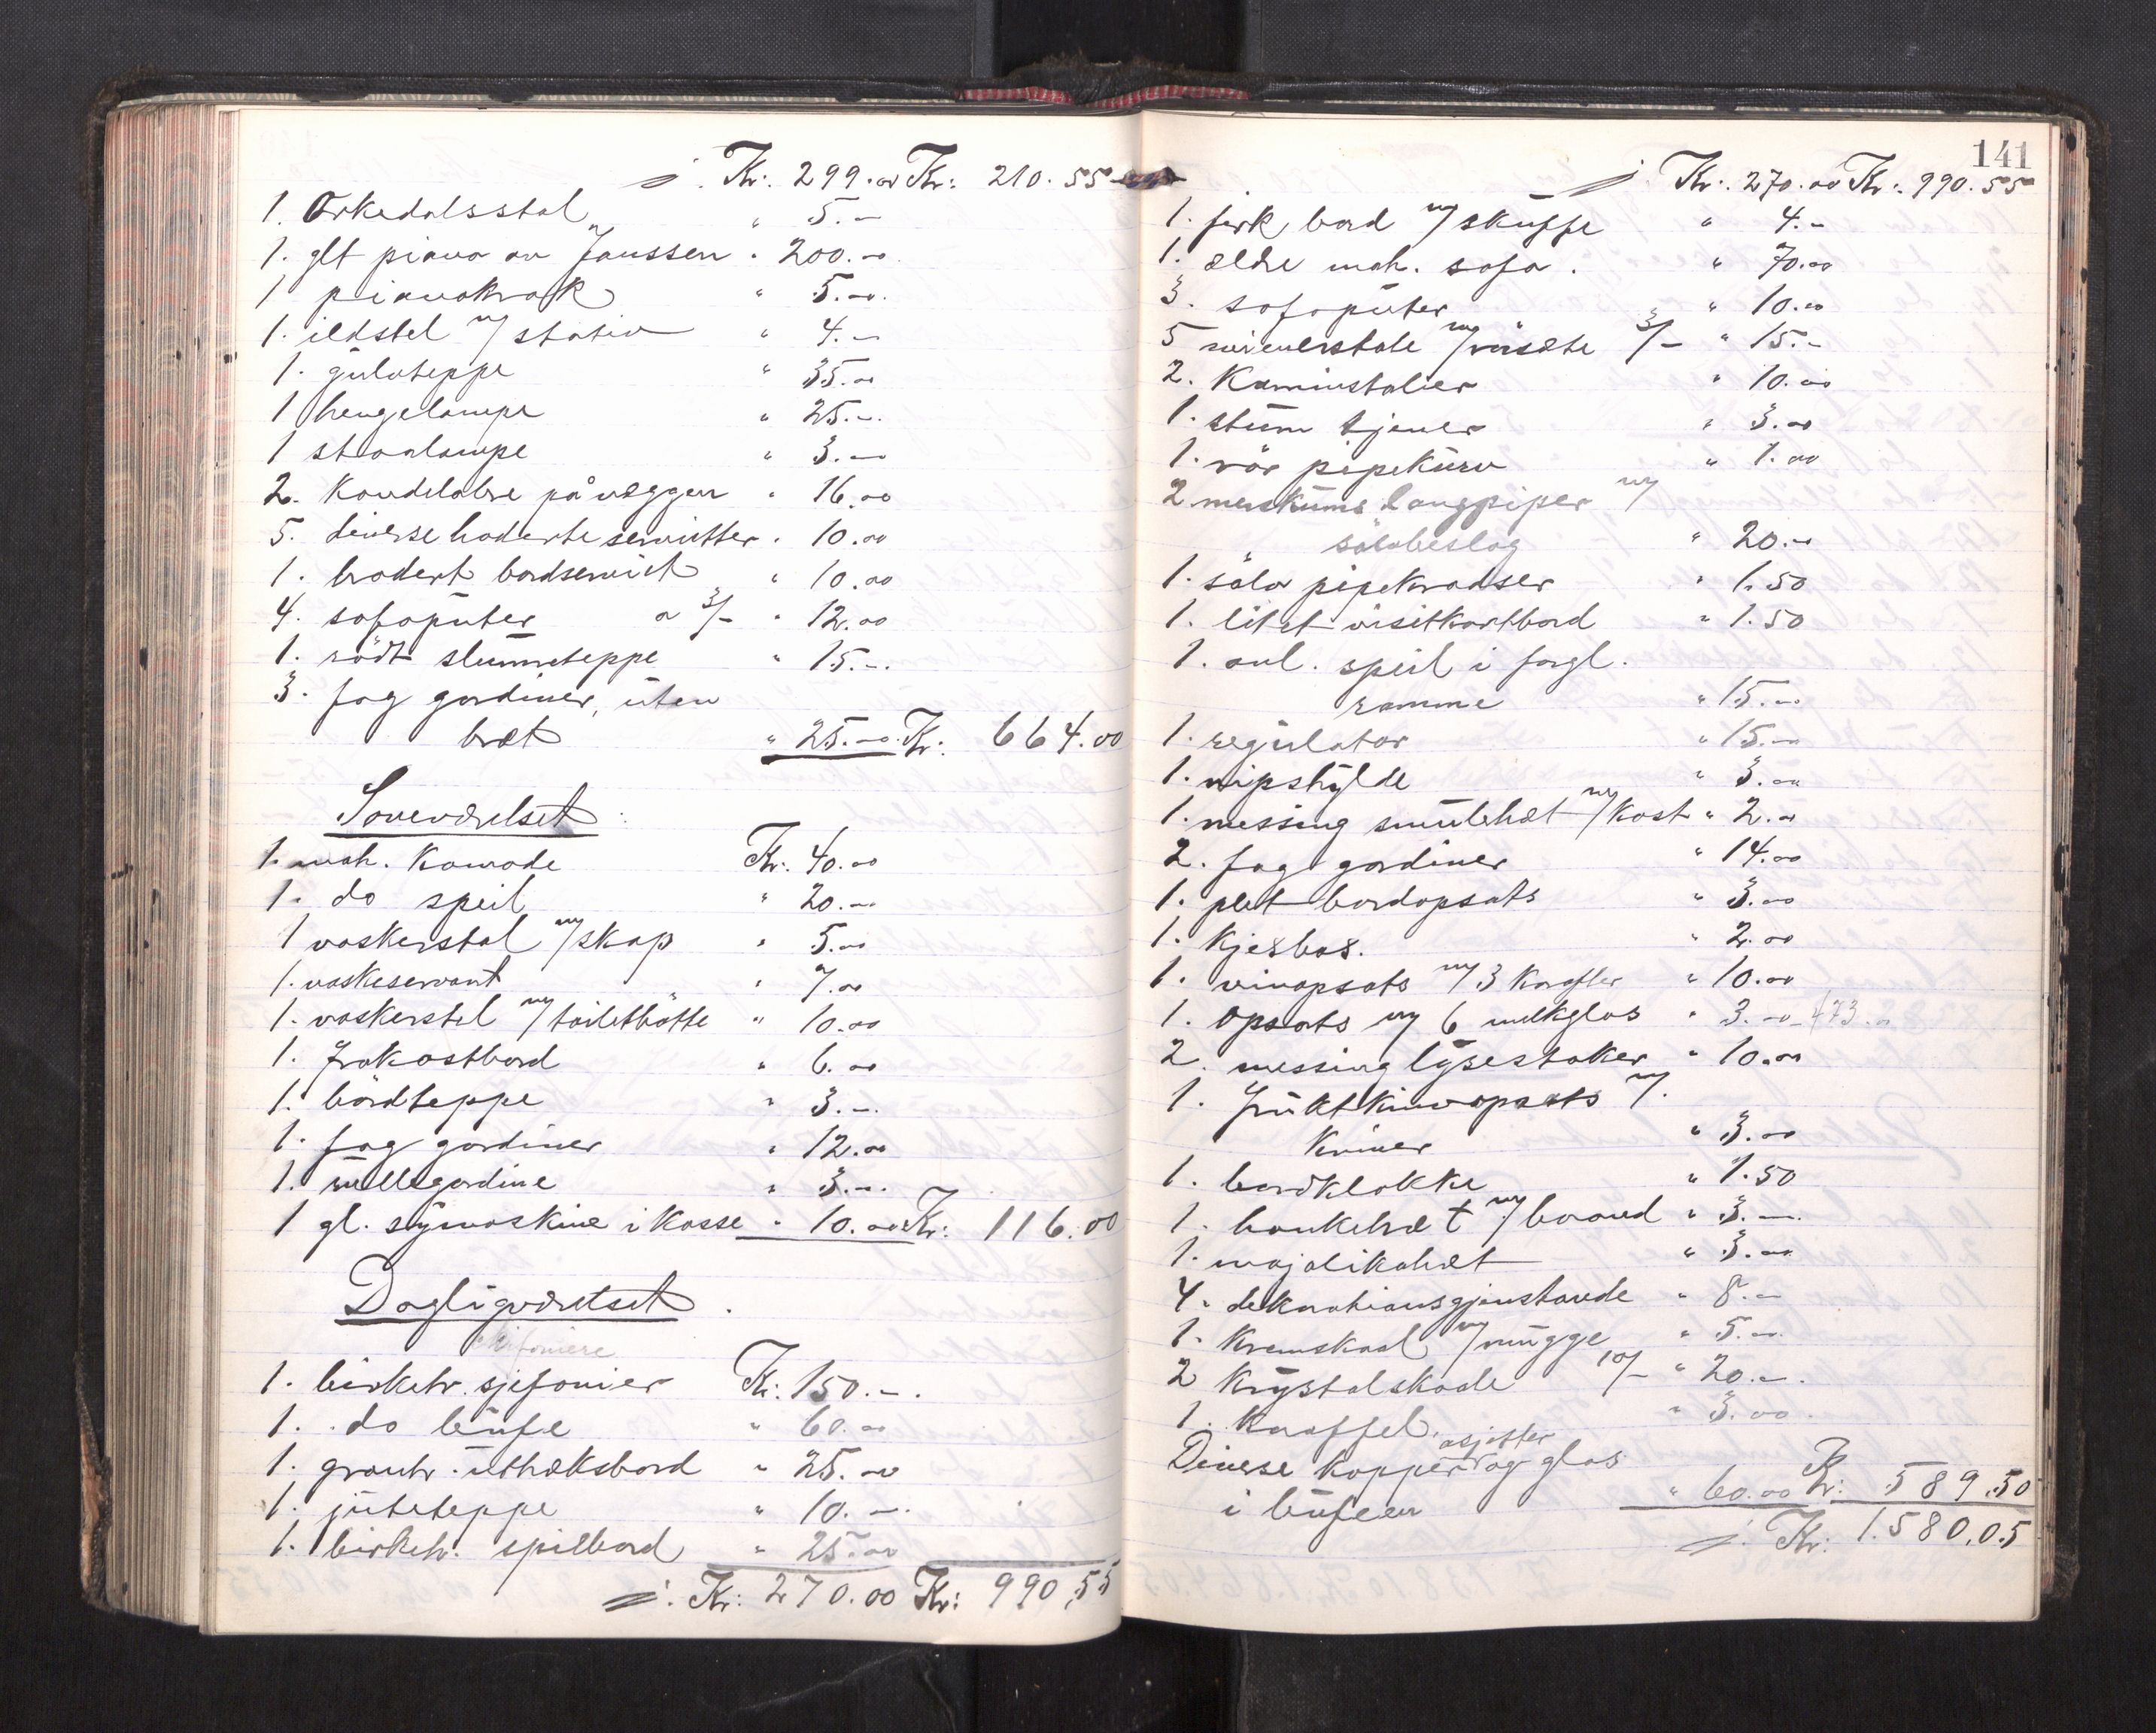 ./. Kr. 299.00 Kr: 210.55
1. Orkedalsstol " 5.-
1. glt piano av Janssen " 200.00
1 pianokrak " 5.00
1. ildstel m/stativ " 4.-
1. gulvteppe " 35.00
1 hengelampe " 25.-
1 stoalampe " 3.00
2. Kandelabre på væggen " 16.00
5. diverse broderte servietter " 10.00
1. brodert bordserviet " 10.00
4. sofaputer a 3/- " 12.00
1. rødt slummeteppe " 15.-
3. fag gardiner, uten
bræt " 25.00 Kr: 664.00
Soveværelset:
1. mah. Komode Kr: 40.00
1. do speil " 20.-
1 vaskerstol m/skap " 5.00
1. vaskeservant " 7.00
1. vaskerstel m/toiletbøtte " 10.00
1. frokostbord " 6.00
1. bordteppe " 3.-
1. fag gardiner " 12.00
1. rullegardine " 3.-
1 gl. symaskine i kasse " 10.00 Kr: 116.00
Dagligværelset.
chifoniere
1. birketr. sjefonier Kr: 150.-
1. do bufe " 60.00
1. grantr. uttræksbord " 25.00
1. juteteppe " 10.-
1. birketr. spilbord " 25.00
./. Kr: 270.00 Kr: 990,55
141
./. Kr: 270.00 Kr: 990.55
1. firk bord m/skuffe " 4.-
1. ældre mah. sofa. " 70.00
3. sofaputer " 10.00
5 wienerstole m/rørsæte 3/- " 15.-
2. Kaminstoler " 10.00
1. stum tjener " 3.00
1. rør pipekurv " 1.00
2 merskums langpiper m/
sølvbeslag " 20.-
1. sølv pipekradser " 1.50
1. litet visitkortbord " 1.50
1. avl. speil i forgl.
ramme " 15.00
1. regulator " 15.-
1. nipshylde " 3.00
1. messing smulebræt m/kost " 2.00
2. fag gardiner " 14.00
1. plet bordopsats " 3.00
1. Kjesbos. " 2.00
1. vinopsats m/3 karafler " 10.00
1. Opsats m/ 6 melkglas " 3.00 473.00
2. messing lysestaker " 10.00
1. fruktknivopsats m/.
Kniver " 3.00
1. bordklokke " 1.50
1. bankebræt m/borand " 3.-
1. majolikabræt " 3.00
4. dekorationsgjenstande " 8.-
1. Kremskaal m/mugge " 5.00
2 Krystalskaale 10/- " 20.-
1. karaffel. " 3.00
asjetter
Diverse kopper og glas
i bufeen " 60.00 Kr: 589,50
./. Kr: 1.580,05